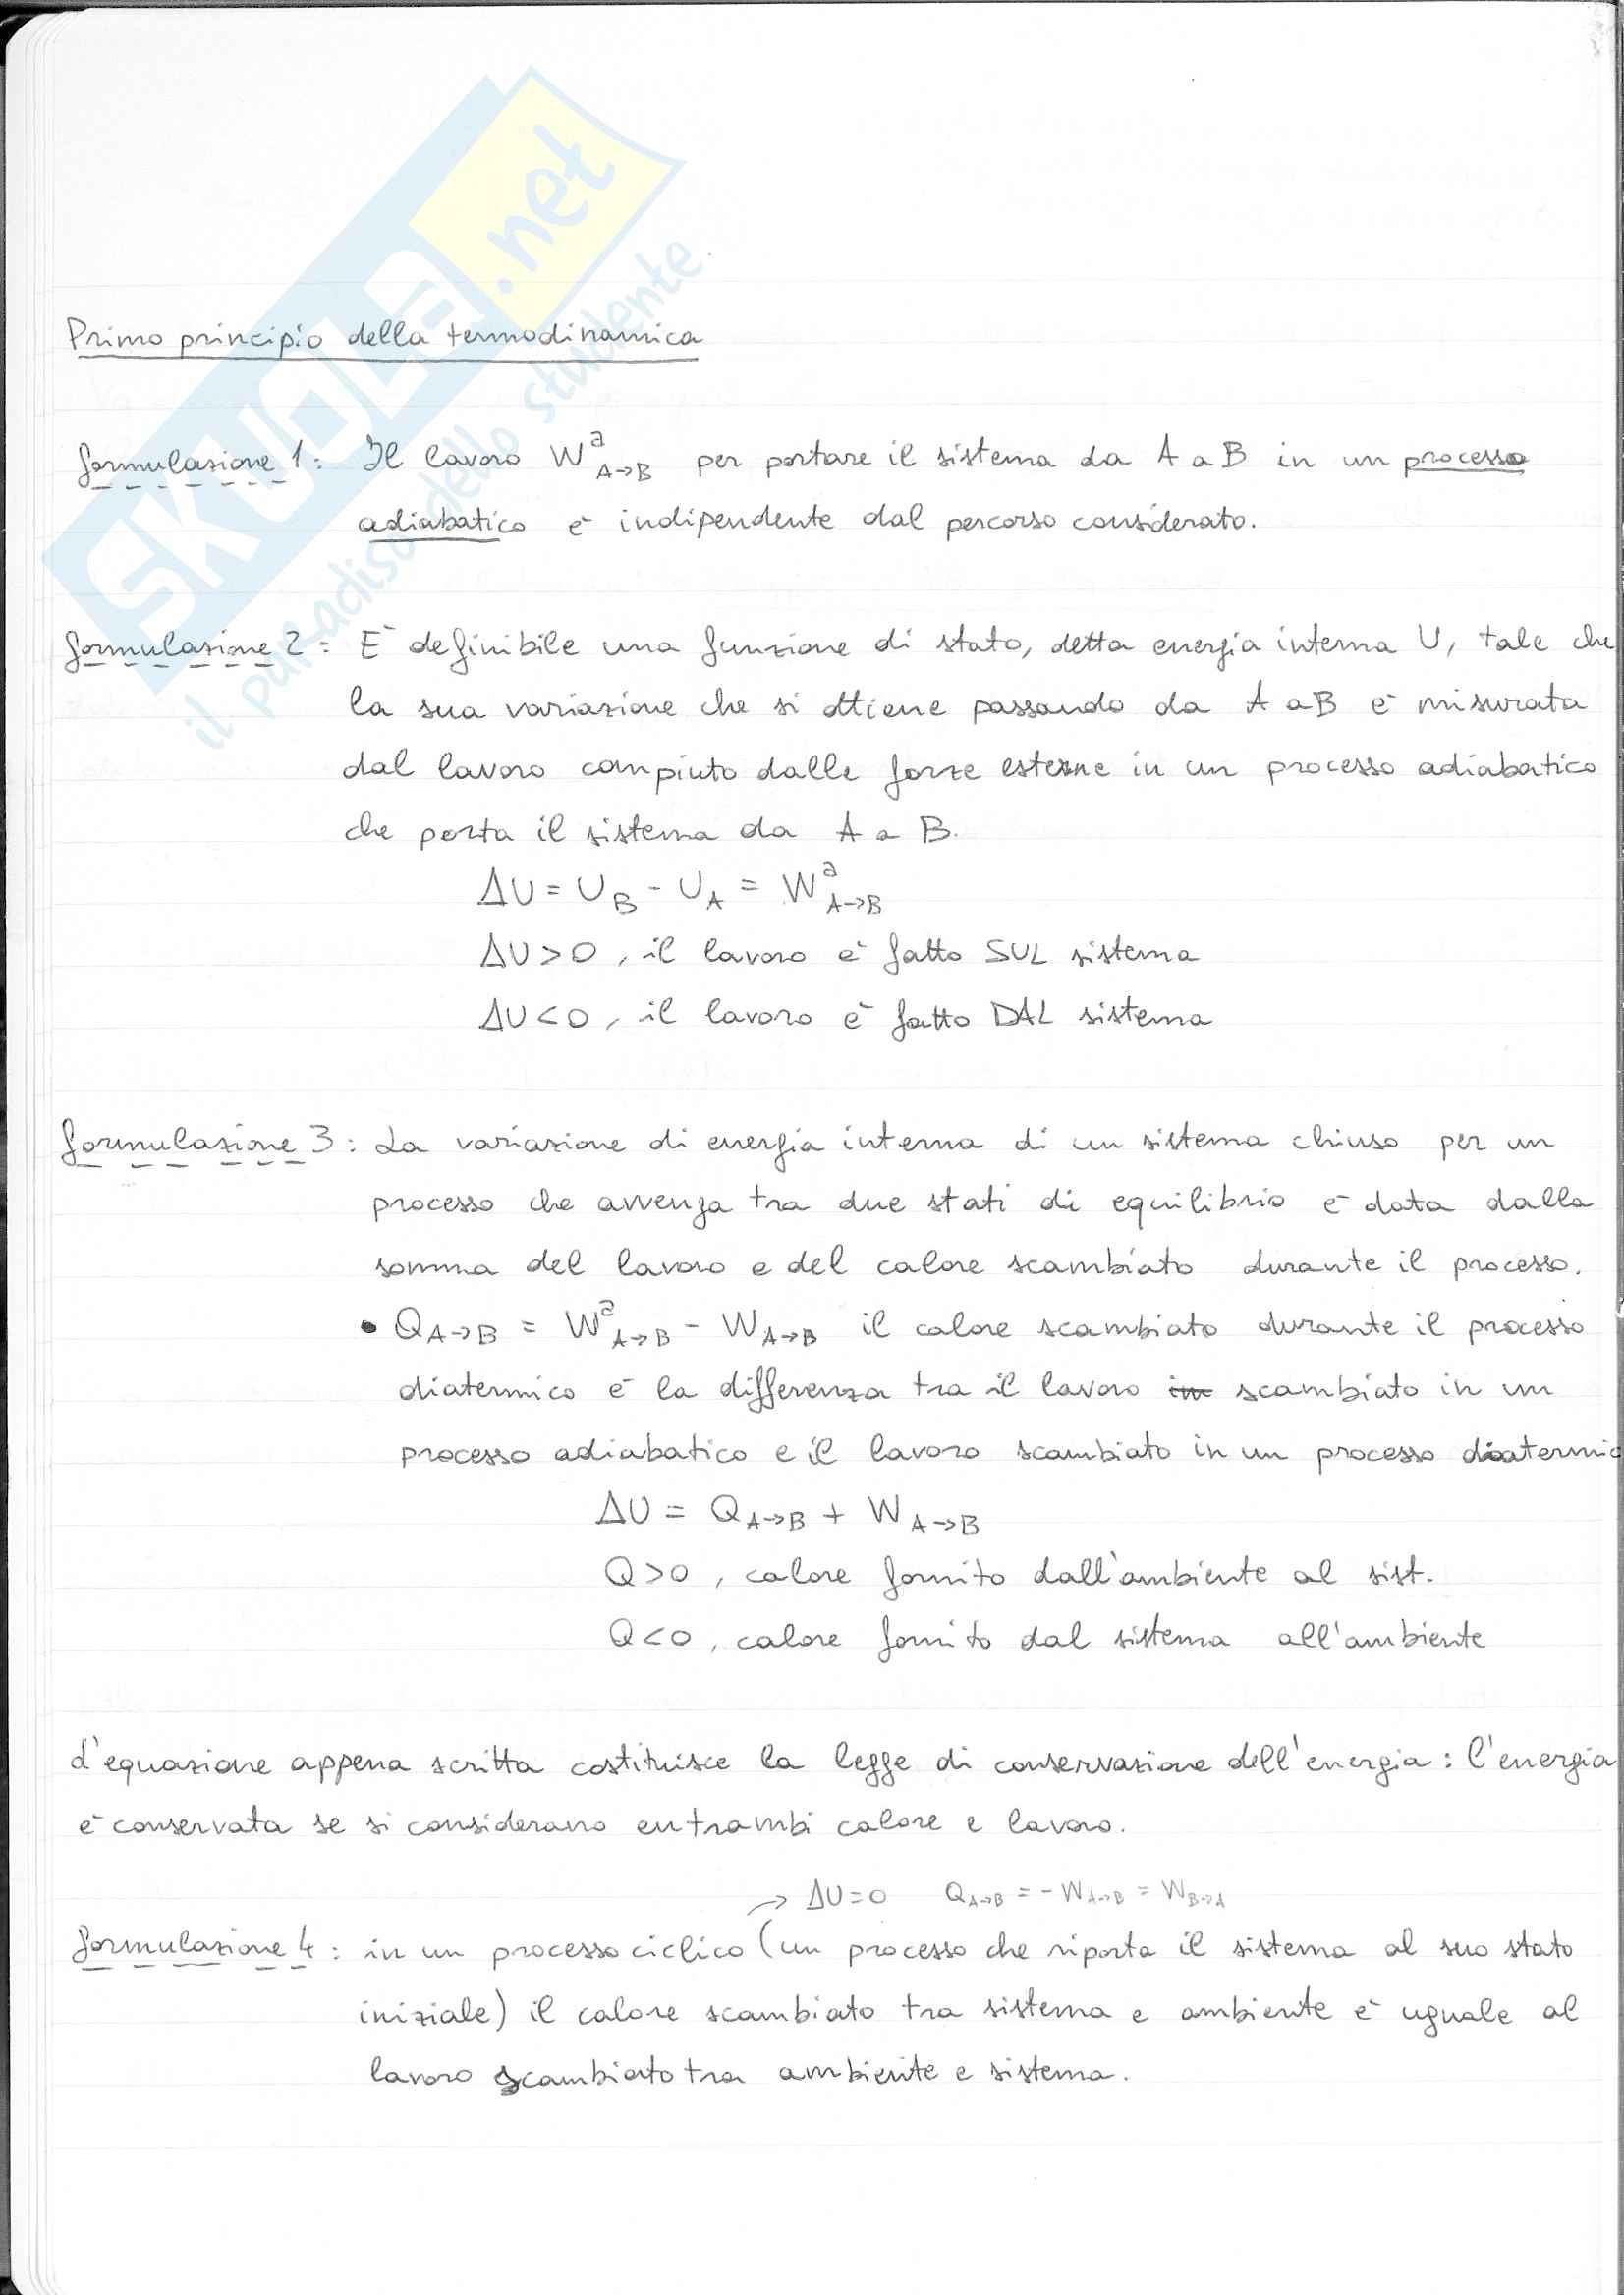 SKUOLA.net
il paradiso dello studente
Primo principio della termodinamica
formulazione 1: Il lavoro Wᵃ A→B per portare il sistema da A a B in un processo
adiabatico è indipendente dal percorso considerato.
formulazione 2: È definibile una funzione di stato, detta energia interna U, tale che
la sua variazione che si ottiene passando da A a B è misurata
dal lavoro compiuto dalle forze esterne in un processo adiabatico
che porta il sistema da A a B.
ΔU = U_B - U_A = Wᵃ A→B
ΔU>0, il lavoro è fatto SUL sistema
ΔU<0, il lavoro è fatto DAL sistema
formulazione 3: La variazione di energia interna di un sistema chiuso per un
processo che avvenga tra due stati di equilibrio è data dalla
somma del lavoro e del calore scambiato durante il processo.
• Q A→B = Wᵃ A→B - W A→B il calore scambiato durante il processo
diatermico è la differenza tra il lavoro in scambiato in un
processo adiabatico e il lavoro scambiato in un processo diatermic
ΔU = Q A→B + W A→B
Q>0, calore fornito dall'ambiente al sist.
Q<0, calore fornito dal sistema all'ambiente
L'equazione appena scritta costituisce la legge di conservazione dell'energia: l'energia
è conservata se si considerano entrambi calore e lavoro.
→ ΔU=0 Q A→B = -W A→B = W B→A
formulazione 4: in un processo ciclico (un processo che riporta il sistema al suo stato
iniziale) il calore scambiato tra sistema e ambiente è uguale al
lavoro scambiato tra ambiente e sistema.